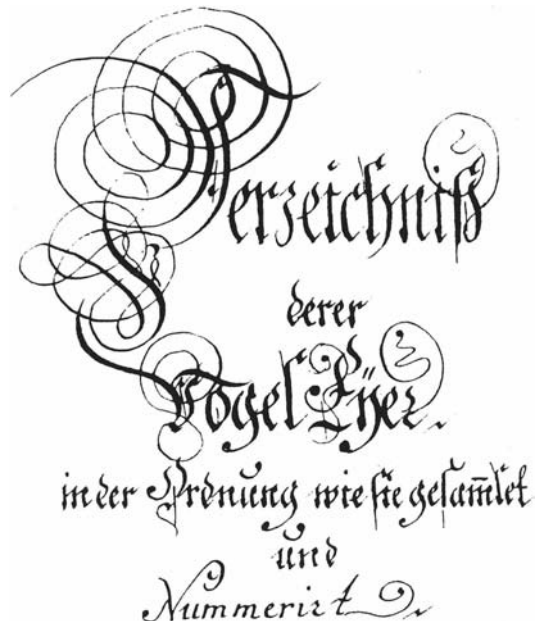 Verzeichniß
derer
Vögel Eÿer.
in der Ordnung wie sie gesam̄let
und
Nummerirt.